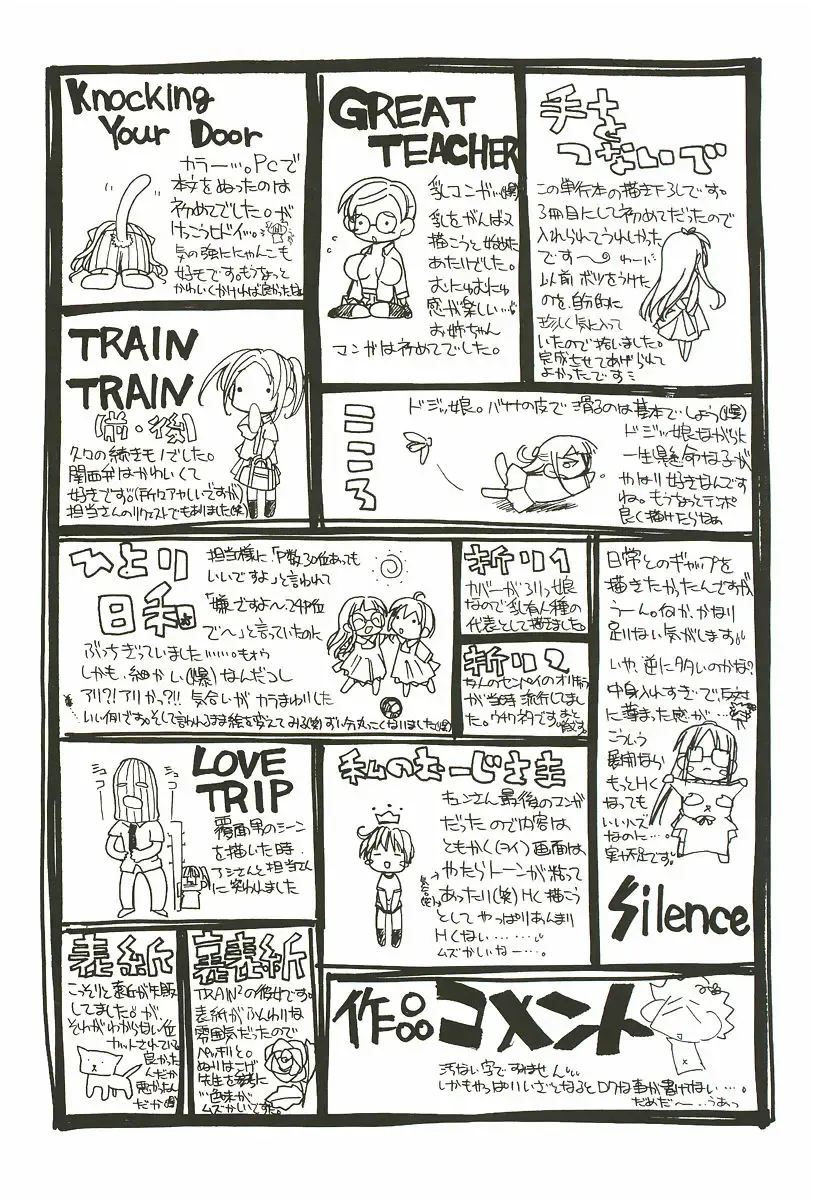 Knocking
Your Door
カラー…。PCで
本文をぬったのは
初めてでした。が
けっこうヒドイ…。
気の強いにゃんこも
好きです。もうちょっと
かわいくかければ良かったな
GREAT
TEACHER
乳コンガ…(爆)
乳をがんばって
描こうと始めた
あたりでした。
むにゅむにゅ
感が楽しい…
お姉ちゃん
マンガは初めてでした。
手を
つないで
この単行本の描き下ろしです。
3冊目にして初めてだったので
入れられてうれしかった
です〜
わーい
以前ボツをうけた
のを、自分的に
珍しく気に入って
いたので拾いました。
完成させてあげられて
よかったです
TRAIN
TRAIN
(前・後)
久々の続きモノでした。
関西弁はかわいくて
好きです。(チョイアヤしいですが)
担当さんのリクエストでもありました(笑)
こころ
ドジッ娘。バナナの皮で滑るのは基本でしょう(爆)
ドジッ娘ながらに
一生懸命な子が
かなり好きなんです
ね。もうちょっとテンポ
良く描けたらなぁ
ひとり
日和
担当様に、「P数30位あっても
いいですよ」と言われて
「嫌ですよ〜、24P位
で〜」と言っていたのに
ぶっちぎっていました……。もぉう
しかも、細かい(爆)なんだっし
アリ?!アリかっ?!!気合いがカラまわりした
いい例です。そして言われるまま絵を変えてみる(笑)ずい分丸っこくなりました(爆)
折り1
カバーがろりっ娘
なので乳有人種の
代表として描きました。
折り2
が当時流行してまし
日常とのギャップを
描きたかったんですが
うーん。何か、かなり
足りない気がします。
いや、逆に多いのかな?
中身入れすぎで反対
に薄まった感が…
こうしう
もっとHく
なっても
いいハズ
なのに…。
実力不足です。
Silence
LOVE
TRIP
シュコ
シュコ
覆面男のシーン
を描いた時、
アシさんと担当さん
に笑われました
私のおーじさま
キュンさん最後のマンガ
だったので内容は
ともかく(コイ)画面は
やたらトーンが貼って
あったり(笑)Hく描こう
としてやっぱりあんまり
Hくない………。
ムズかしいねー…。
表紙
こっそりと裏面が失敗
してました。が、
それがわからない位
カットされていて
良かった
んだか
悪かったん
だか(爆)
裏表紙
TRAIN²の彼女です。
表紙がふんわりな
雰囲気だったので
色味が
ムズかしいですた。
作品コメント
汚ない字ですみません…
しかもやっぱりいざとなるとロクな事が書けない…。
だめだ〜……うあっ